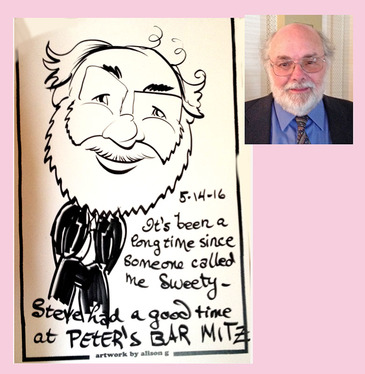 5-14-16
It's been a
long time since
someone called
me Sweety-
Steve had a good time
at PETER'S BAR MITZ
artwork by alison g